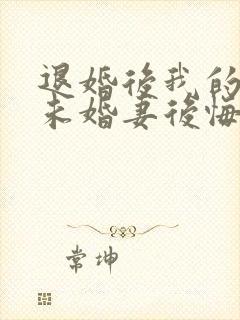 退婚後我的
未婚妻後悔
常坤